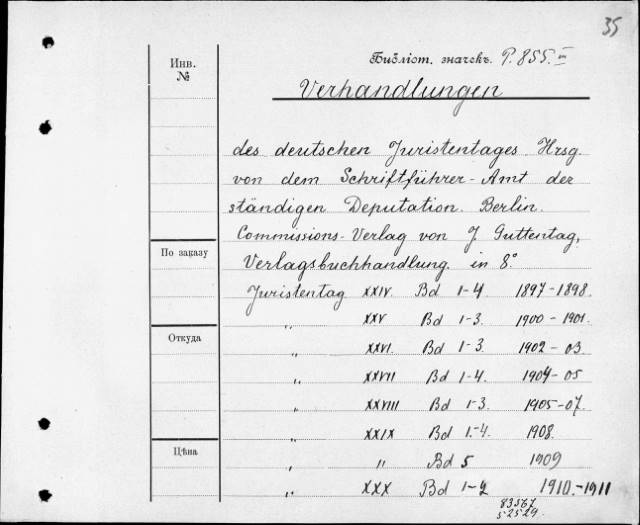 35
Инв.
№
Библіот. значекъ. P. 855. III
Verhandlungen
des deutschen Juristentages. Hrsg.
von dem Schriftführer-Amt der
ständigen Deputation. Berlin.
Commissions-Verlag von J. Guttentag,
По заказу
Verlagsbuchhandlung. in 8°.
Juristentag XXIV. Bd 1-4 1897-1898.
„ XXV Bd 1-3. 1900-1901.
Откуда
„ XXVI. Bd 1-3. 1902-03.
„ XXVII Bd 1-4. 1904-05
„ XXVIII Bd 1-3. 1905-07.
„ XXIX Bd 1-4. 1908.
Цѣна
„ „ Bd 5 1909
„ XXX Bd 1-2 1910.-1911
83567
52524